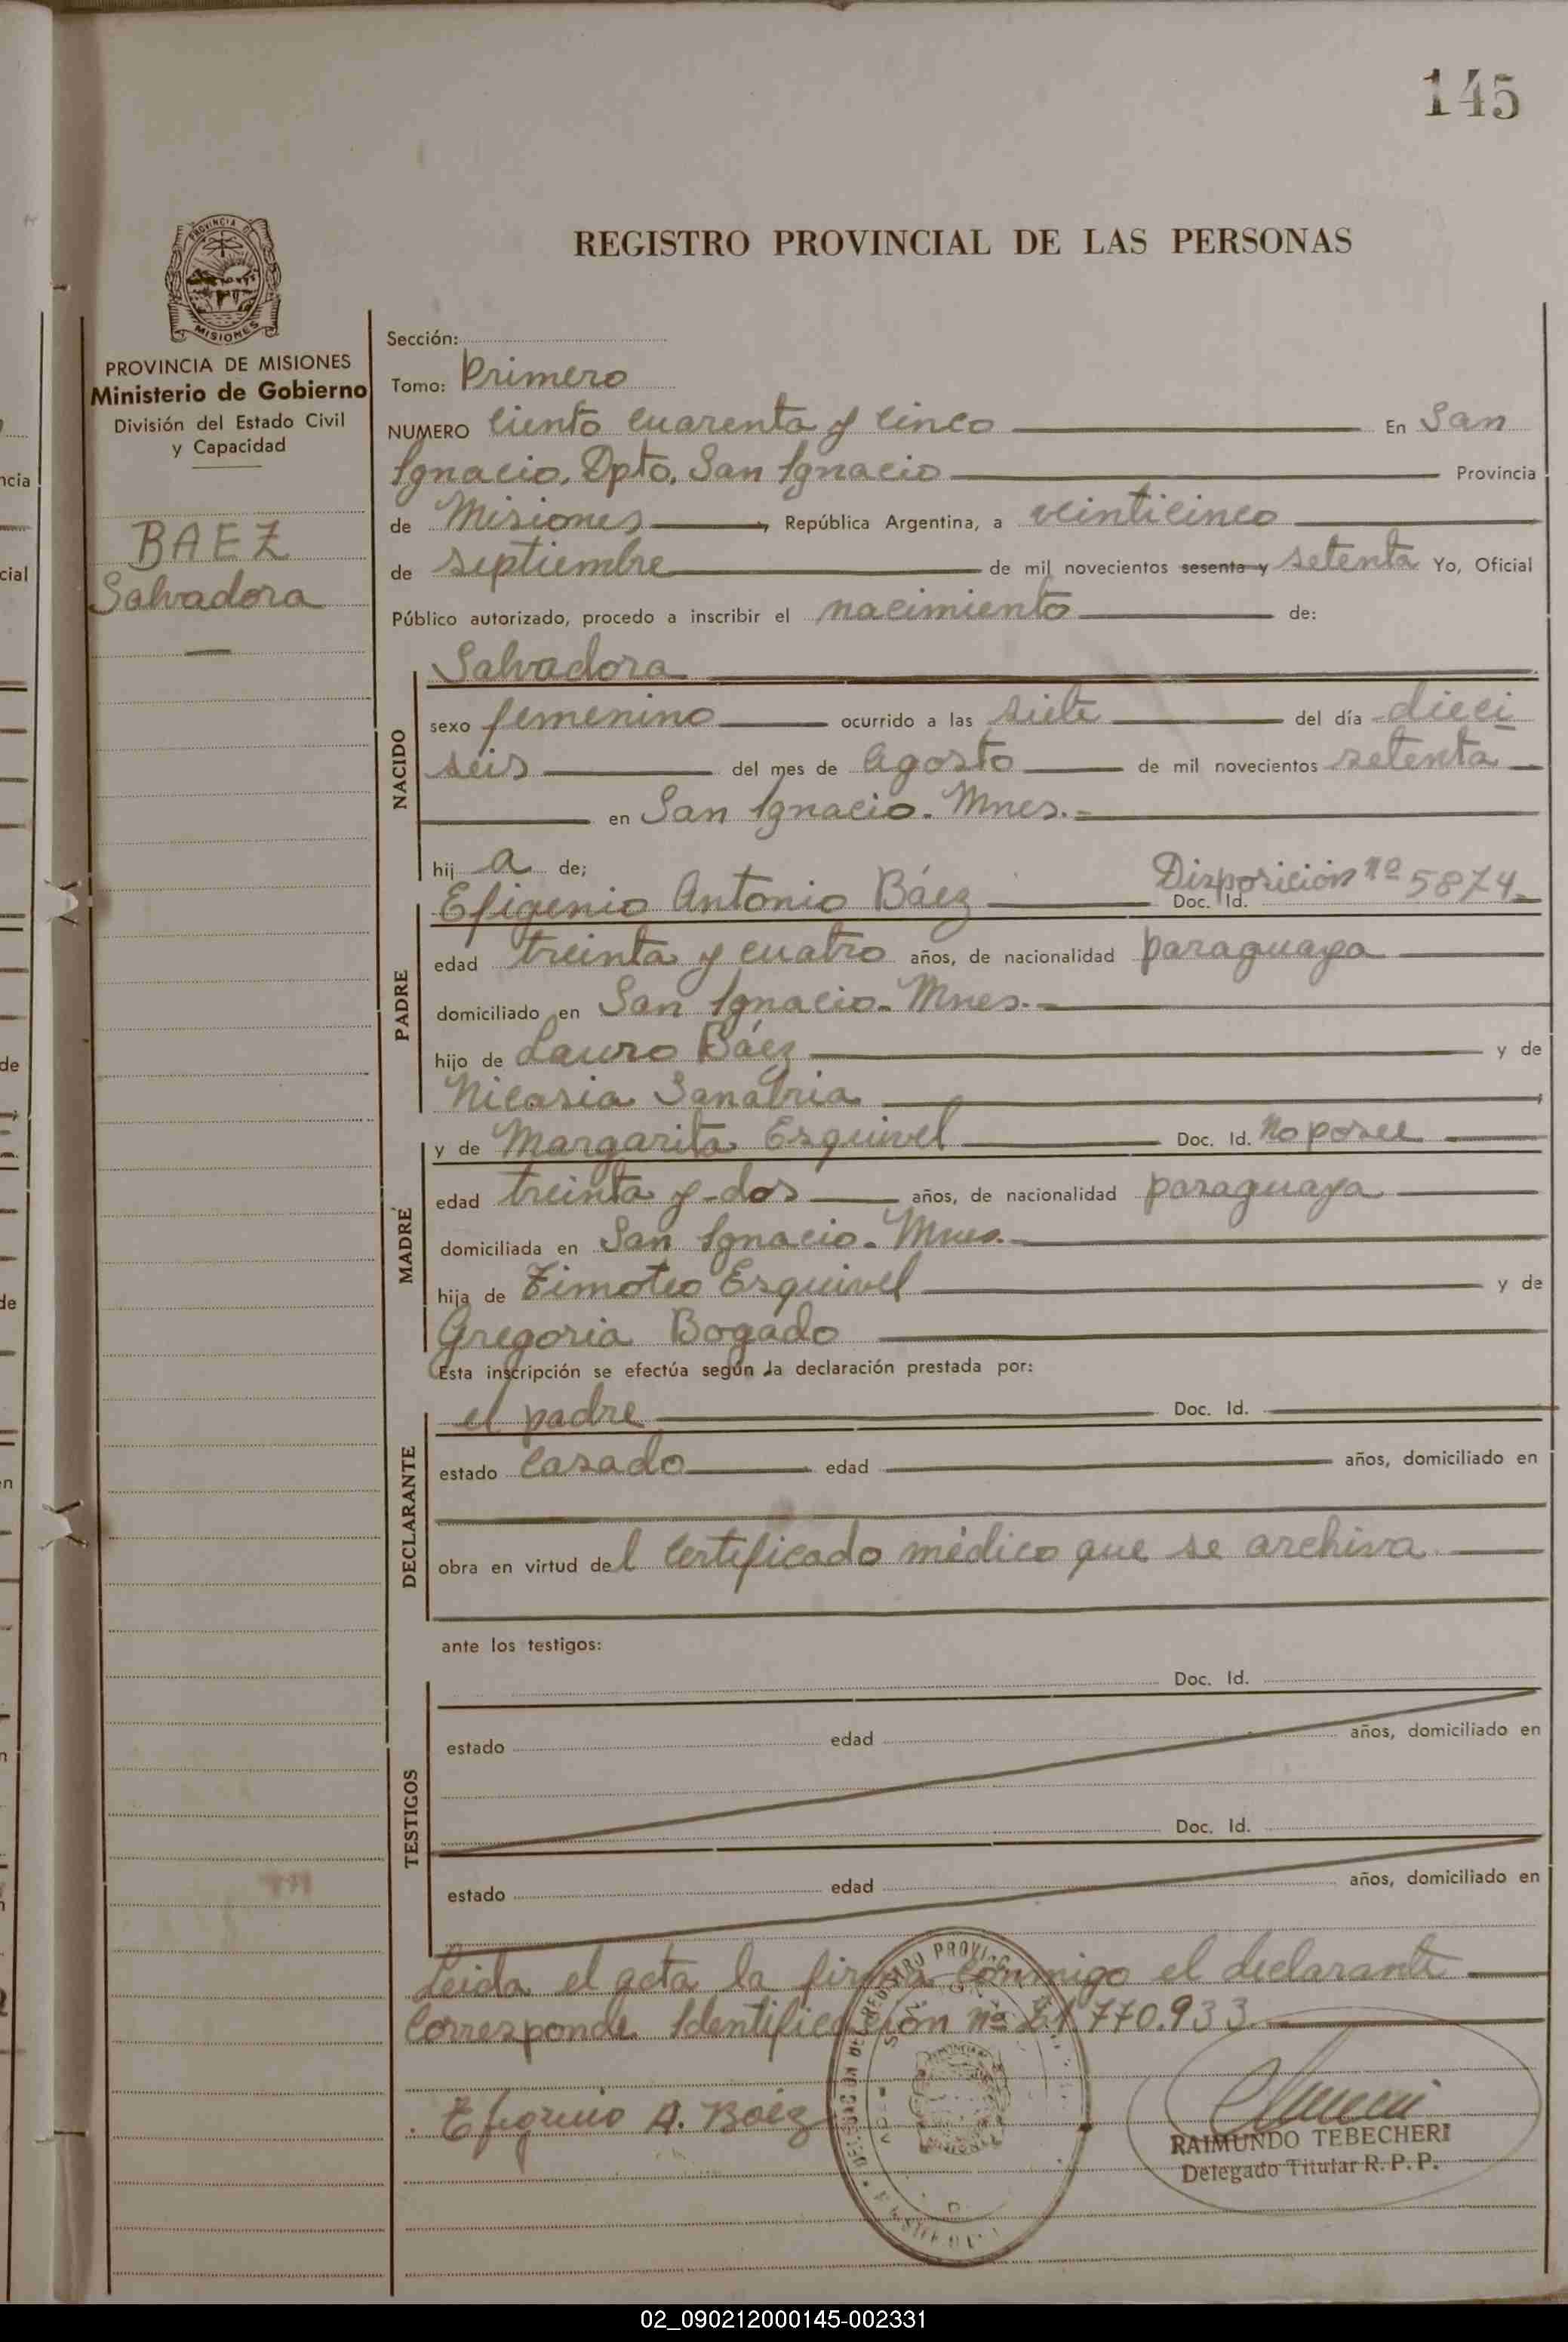 145
REGISTRO PROVINCIAL DE LAS PERSONAS
PROVINCIA DE
MISIONES
PROVINCIA DE MISIONES
Ministerio de Gobierno
División del Estado Civil
y Capacidad
BAEZ
Salvadora
Sección:
Tomo: Primero
NUMERO Ciento cuarenta y cinco En San
Ignacio, Dpto. San Ignacio Provincia
de Misiones, República Argentina, a veinticinco
de septiembre de mil novecientos sesenta y setenta Yo, Oficial
Público autorizado, procedo a inscribir el nacimiento de:
Salvadora
NACIDO
sexo femenino ocurrido a las siete del día dieci
seis del mes de Agosto de mil novecientos setenta
en San Ignacio. Mnes.-
hij a de;
Efigenio Antonio Báez Doc. Id. Disposición nº 5874
PADRE
edad treinta y cuatro años, de nacionalidad paraguaya
domiciliado en San Ignacio. Mnes.-
hijo de Lauro Báez y de
Nicasia Sanabria
y de Margarita Esquivel Doc. Id. No posee
MADRE
edad treinta y dos años, de nacionalidad paraguaya
domiciliada en San Ignacio. Mnes.
hija de Timoteo Esquivel y de
Gregoria Bogado
Esta inscripción se efectúa según la declaración prestada por:
el padre Doc. Id.
DECLARANTE
estado Casado edad años, domiciliado en
obra en virtud del Certificado médico que se archiva
ante los testigos:
Doc. Id.
TESTIGOS
estado edad años, domiciliado en
Doc. Id.
estado edad años, domiciliado en
Leida el acta la firma conmigo el declarante
Corresponde Identificación nº 21.770.933
Efigenio A. Báez
RAIMUNDO TEBECHERI
Delegado Titular R. P. P.
02_090212000145-002331